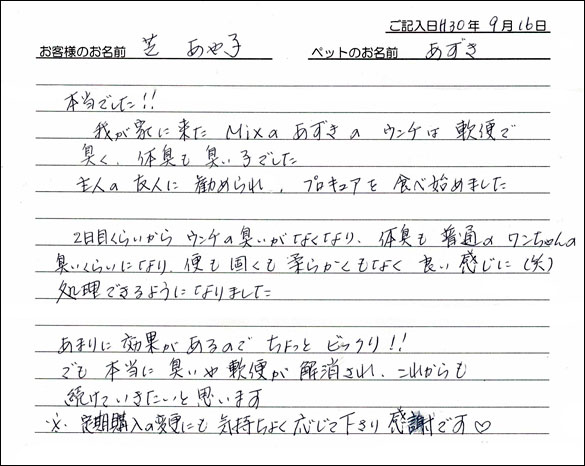 ご記入日H30年9月16日
お客様のお名前 芝 あや子 ペットのお名前 あずき
本当でした!!
我が家に来た Mixの あずきの ウンチは 軟便で
臭く、体臭も 臭い子でした
主人の友人に 勧められ、プロキュアを 食べ始めました
2日目くらいから ウンチの臭いがなくなり、体臭も 普通の ワンちゃんの
臭いくらいになり、便も 固くも 柔らかくもなく 良い感じに(笑)
処理できるようになりました
あまりに 効果が あるので ちょっと ビックリ!!
でも 本当に 臭いや 軟便が 解消され、これからも
続けていきたいと思います
※ 定期購入の変更にも 気持ちよく 応じて下さり 感謝です♡